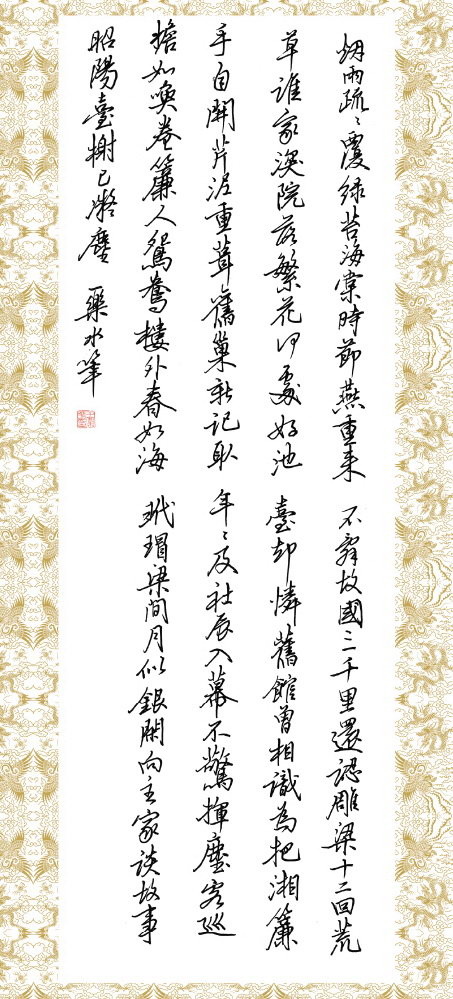 烟雨疏々覆綠苔海棠時節燕重来不辞故國三千里還認雕梁十二回荒
草誰家深院落繁花何處好池臺却憐舊館曾相識為把湘簾
手自開芹泥重葺舊巢新記取年々及社辰入幕不驚揮麈客巡
檐如喚卷簾人鴛鴦樓外春如海玳瑁梁間月似銀閑向主家談故事
昭陽臺榭已凝塵
水筆